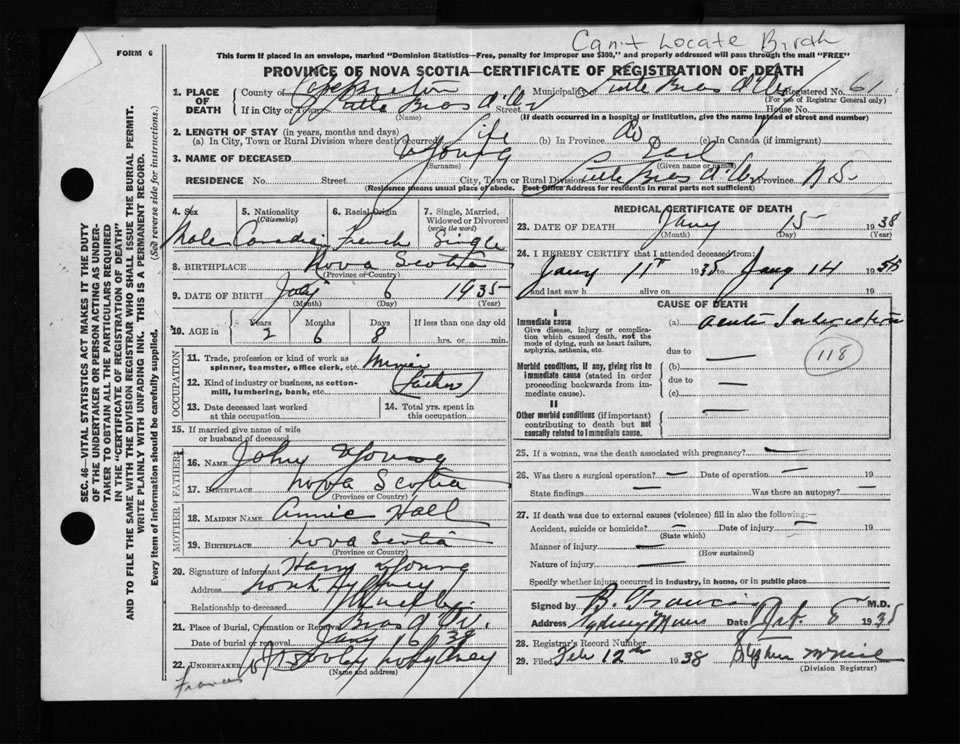 Can't Locate Birth
FORM 6
This form if placed in an envelope, marked "Dominion Statistics—Free, penalty for improper use $300," and properly addressed will pass through the mail "FREE"
PROVINCE OF NOVA SCOTIA—CERTIFICATE OF REGISTRATION OF DEATH
1. PLACE OF DEATH
County of Cape Breton Municipality Little Bras d'Or Registered No. 61
(For use of Registrar General only)
If in City or Town Little Bras d'Or Street House No.
(Name) (If death occurred in a hospital or institution, give the name instead of street and number)
2. LENGTH OF STAY (in years, months and days)
(a) In City, Town or Rural Division where death occurred Life (b) In Province Do (c) In Canada (if immigrant)
3. NAME OF DECEASED Young
(Surname) (Given name or names)
RESIDENCE No. Street City, Town or Rural Division Little Bras d'Or Province N.S.
(Residence means usual place of abode. Post Office Address for residents in rural parts not sufficient)
4. Sex
Male
5. Nationality (Citizenship)
Canadian
6. Racial Origin
French
7. Single, Married, Widowed or Divorced (write the word)
Single
8. BIRTHPLACE Nova Scotia
(Province or County)
9. DATE OF BIRTH July 6 1935
(Month) (Day) (Year)
10. AGE in
Years Months Days If less than one day old
2 6 8 hrs. or min.
OCCUPATION
11. Trade, profession or kind of work as spinner, teamster, office clerk, etc. Miner
12. Kind of industry or business, as cotton-mill, lumbering, bank, etc. (Father)
13. Date deceased last worked at this occupation
14. Total yrs. spent in this occupation
15. If married give name of wife or husband of deceased
FATHER
16. NAME John Young
17. BIRTHPLACE Nova Scotia
(Province or Country)
MOTHER
18. MAIDEN NAME Annie Hall
19. BIRTHPLACE Nova Scotia
(Province or Country)
20. Signature of informant Harry Young
Address North Sydney
Relationship to deceased
21. Place of Burial, Cremation or Removal Bras d'Or.
Date of burial or removal Jany 16 / 38
22. UNDERTAKER
(Name and address)
MEDICAL CERTIFICATE OF DEATH
23. DATE OF DEATH Jany 15 1938
(Month) (Day) (Year)
24. I HEREBY CERTIFY that I attended deceased from:
Jany 11th 1938 to Jany 14 1938
and last saw h alive on 19
CAUSE OF DEATH
I
Immediate cause
Give disease, injury or complication which caused death, not the mode of dying, such as heart failure, asphyxia, asthenia, etc.
(a) Acute
due to —
118
Morbid conditions, if any, giving rise to immediate cause (stated in order proceeding backwards from immediate cause).
(b)
due to —
(c)
II
Other morbid conditions (if important) contributing to death but not causally related to immediate cause.
25. If a woman, was the death associated with pregnancy? —
26. Was there a surgical operation? — Date of operation — 19
State findings — Was there an autopsy? —
27. If death was due to external causes (violence) fill in also the following:—
Accident, suicide or homicide? — Date of injury — 19
(State which)
Manner of injury —
(How sustained)
Nature of injury —
Specify whether injury occurred in industry, in home, or in public place
Signed by B. Francis M.D.
Address Sydney Mines Date 1938
28. Registrar's Record Number
29. Filed Feb 12th 1938 Stephen McNeil
(Division Registrar)
SEC. 46—VITAL STATISTICS ACT MAKES IT THE DUTY
OF THE UNDERTAKER OR PERSON ACTING AS UNDER-
TAKER TO OBTAIN ALL THE PARTICULARS REQUIRED
IN THE "CERTIFICATE OF REGISTRATION OF DEATH"
AND TO FILE THE SAME WITH THE DIVISION REGISTRAR WHO SHALL ISSUE THE BURIAL PERMIT.
WRITE PLAINLY WITH UNFADING INK. THIS IS A PERMANENT RECORD.
Every item of information should be carefully supplied. (See reverse side for instructions.)